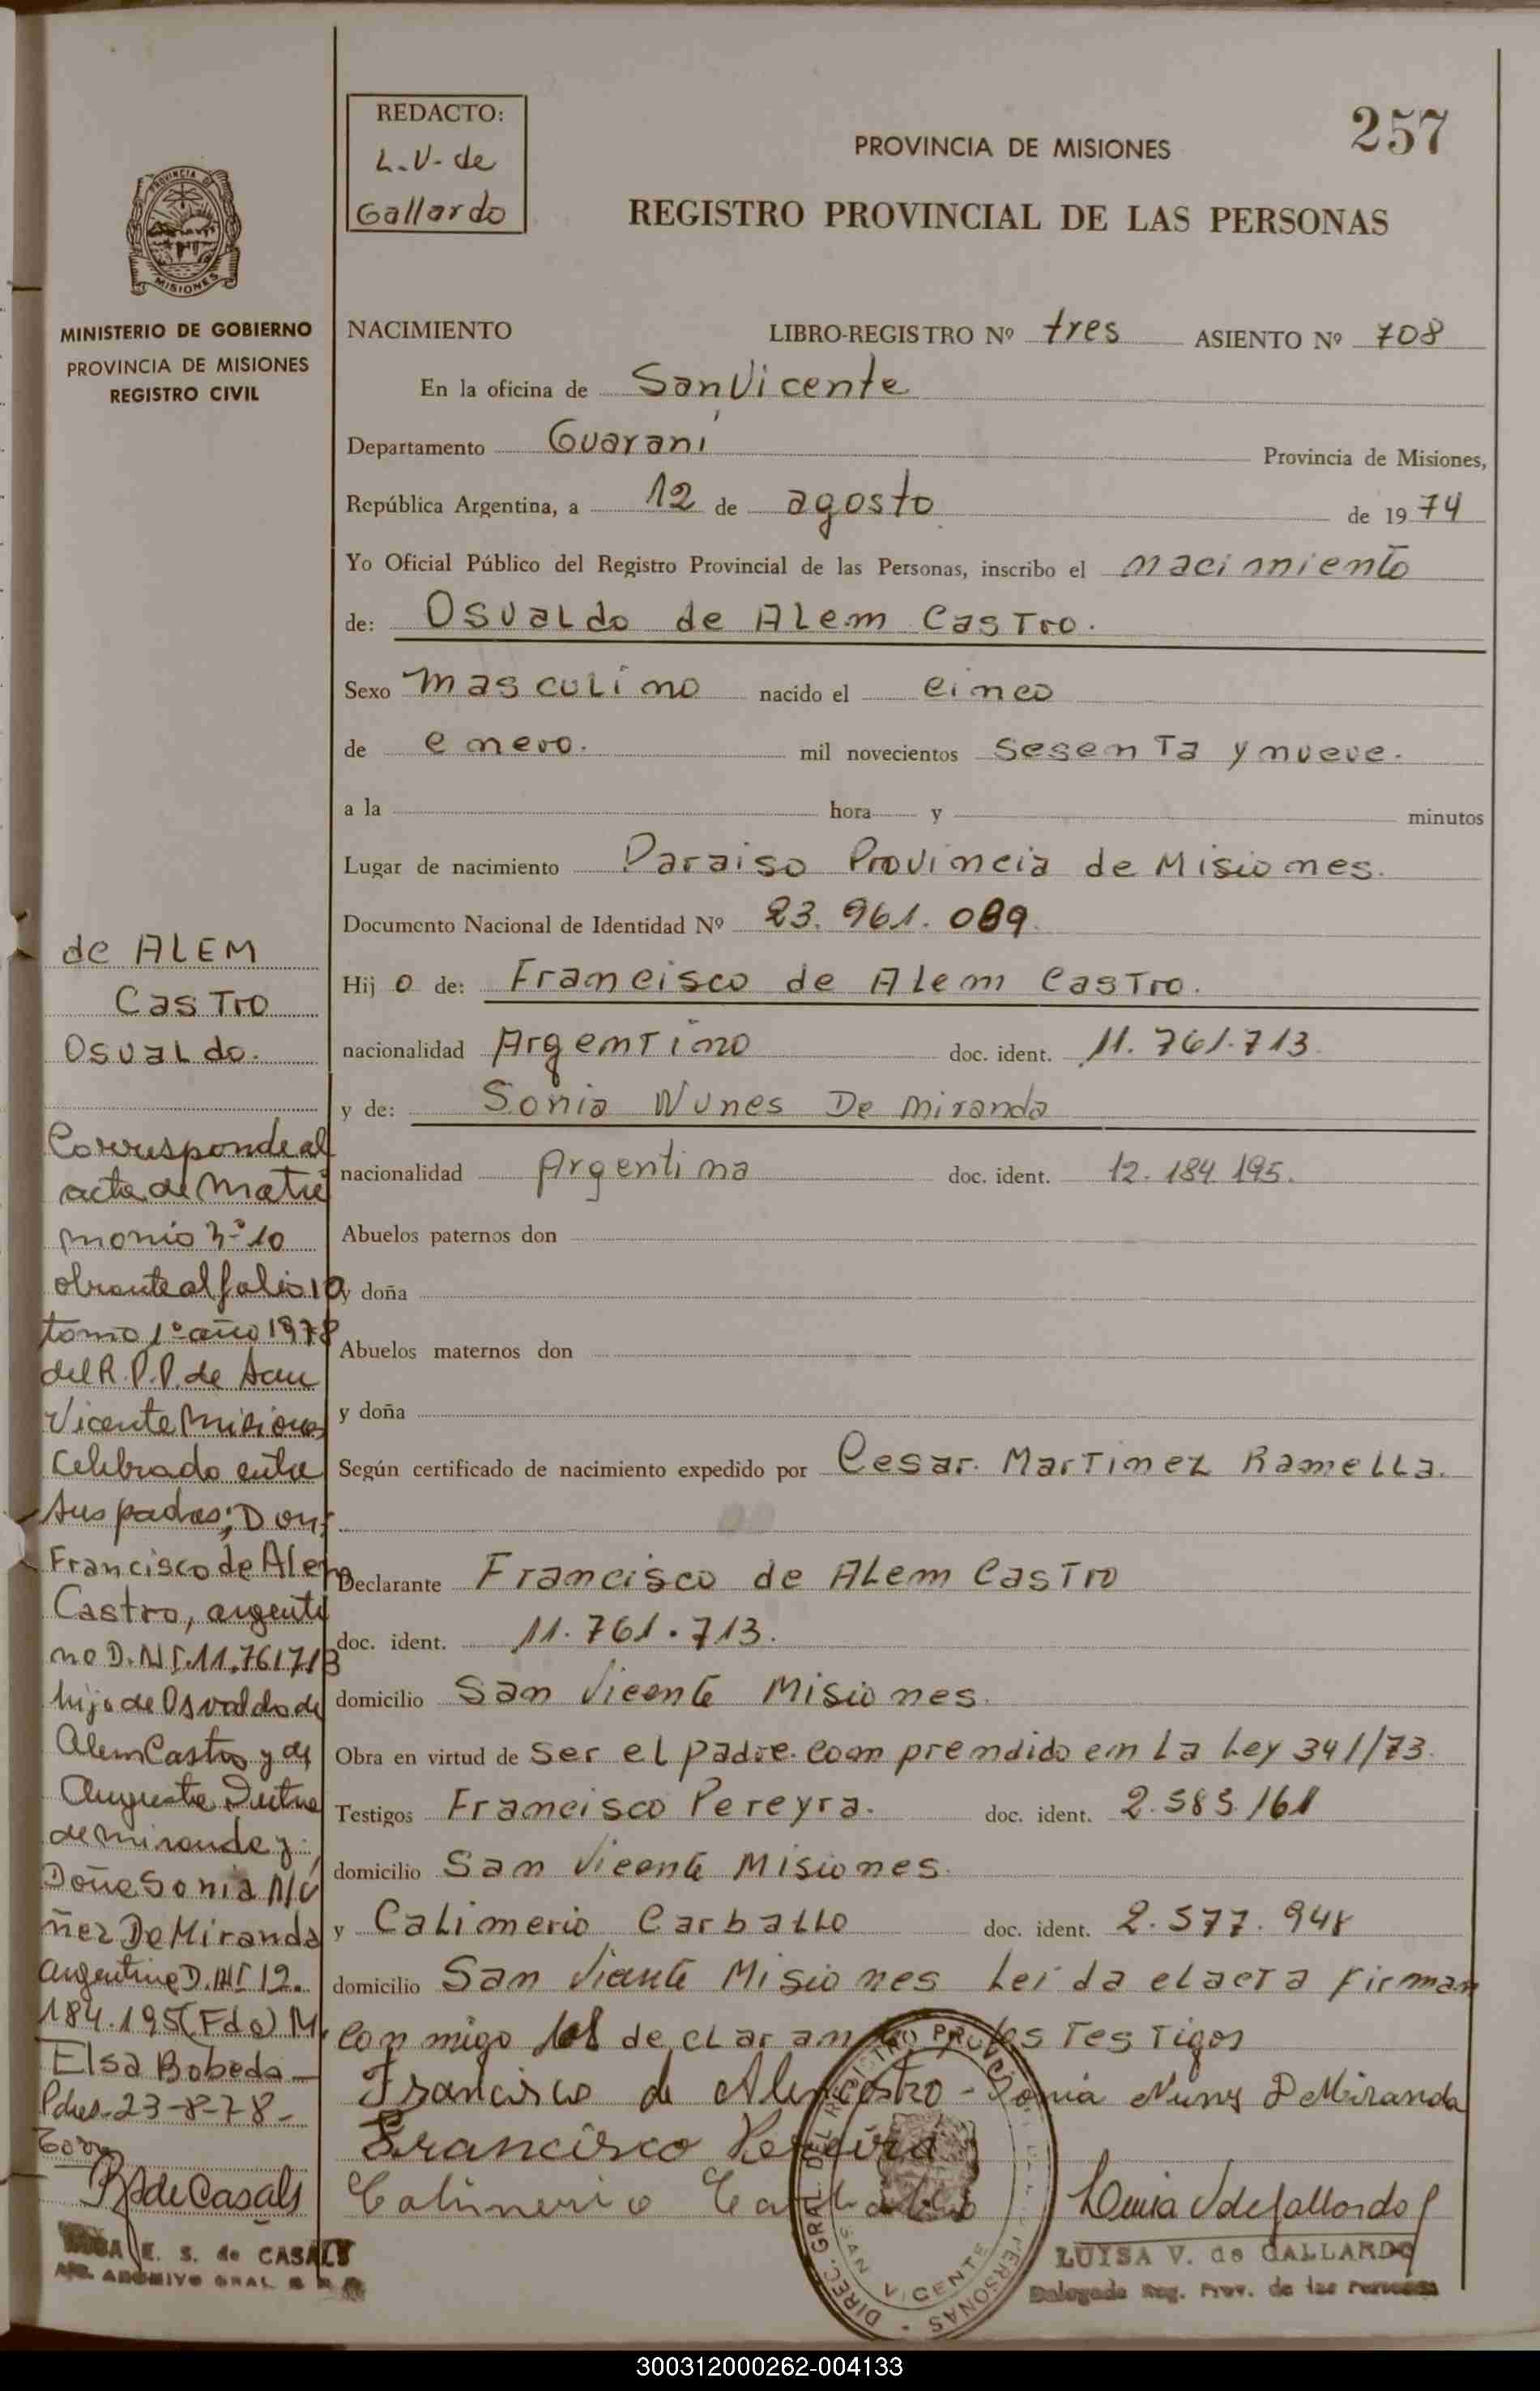 REDACTO:
L.V. de
Gallardo
257
PROVINCIA DE MISIONES
REGISTRO PROVINCIAL DE LAS PERSONAS
PROVINCIA DE
MISIONES
MINISTERIO DE GOBIERNO
PROVINCIA DE MISIONES
REGISTRO CIVIL
NACIMIENTO LIBRO-REGISTRO Nº tres ASIENTO Nº 708
En la oficina de San Vicente
Departamento Guaraní Provincia de Misiones,
República Argentina, a 12 de agosto de 1974
Yo Oficial Público del Registro Provincial de las Personas, inscribo el nacimiento
de: Osvaldo de Alem Castro.
Sexo masculino nacido el cinco
de enero. mil novecientos sesenta y nueve.
a la hora y minutos
Lugar de nacimiento Paraiso Provincia de Misiones.
Documento Nacional de Identidad Nº 23.961.089
Hijo de: Francisco de Alem Castro.
nacionalidad Argentino doc. ident. 11.761.713
y de: Sonia Nunes De Miranda
nacionalidad Argentina doc. ident. 12.184.195.
Abuelos paternos don
y doña
Abuelos maternos don
y doña
Según certificado de nacimiento expedido por Cesar Martinez Ramella.
Declarante Francisco de Alem Castro
doc. ident. 11.761.713.
domicilio San Vicente Misiones.
Obra en virtud de ser el padre. comprendido en la Ley 341/73.
Testigos Francisco Pereyra. doc. ident. 2.585.161
domicilio San Vicente Misiones.
y Calimerio Carballo doc. ident. 2.577.948
domicilio San Vicente Misiones Leída el acta firman
conmigo los declarantes y los testigos
Francisco de Alen Castro - Sonia Nunes D Miranda
Francisco Pereira
Calimerio Carballo
Luisa V de Gallardo
LUYSA V. de GALLARDO
Delegada Reg. Prov. de las Personas
DIREC. GRAL. DEL REGISTRO PROVINCIAL PERSONAS
SAN VICENTE
de ALEM
Castro
Osvaldo.
Corresponde al
acta de Matri
monio Nº 10
obrante al folio 10
tomo 1º año 1978
del R.P.P. de San
Vicente Misiones
Celebrado entre
sus padres; Don
Francisco de Alem
Castro, argenti
no D.N.I. 11.761713
hijo de Osvaldo de
Alem Castro y de
Augusta Dutra
de Miranda y
Doña Sonia Nu
ñez De Miranda
argentina D.N.I 12.
184.195 (Fdo) M.
Elsa Bobeda
Pdas. 23-8-78-
R S de Casals
E. S. de CASALS
ARCHIVO GRAL
300312000262-004133